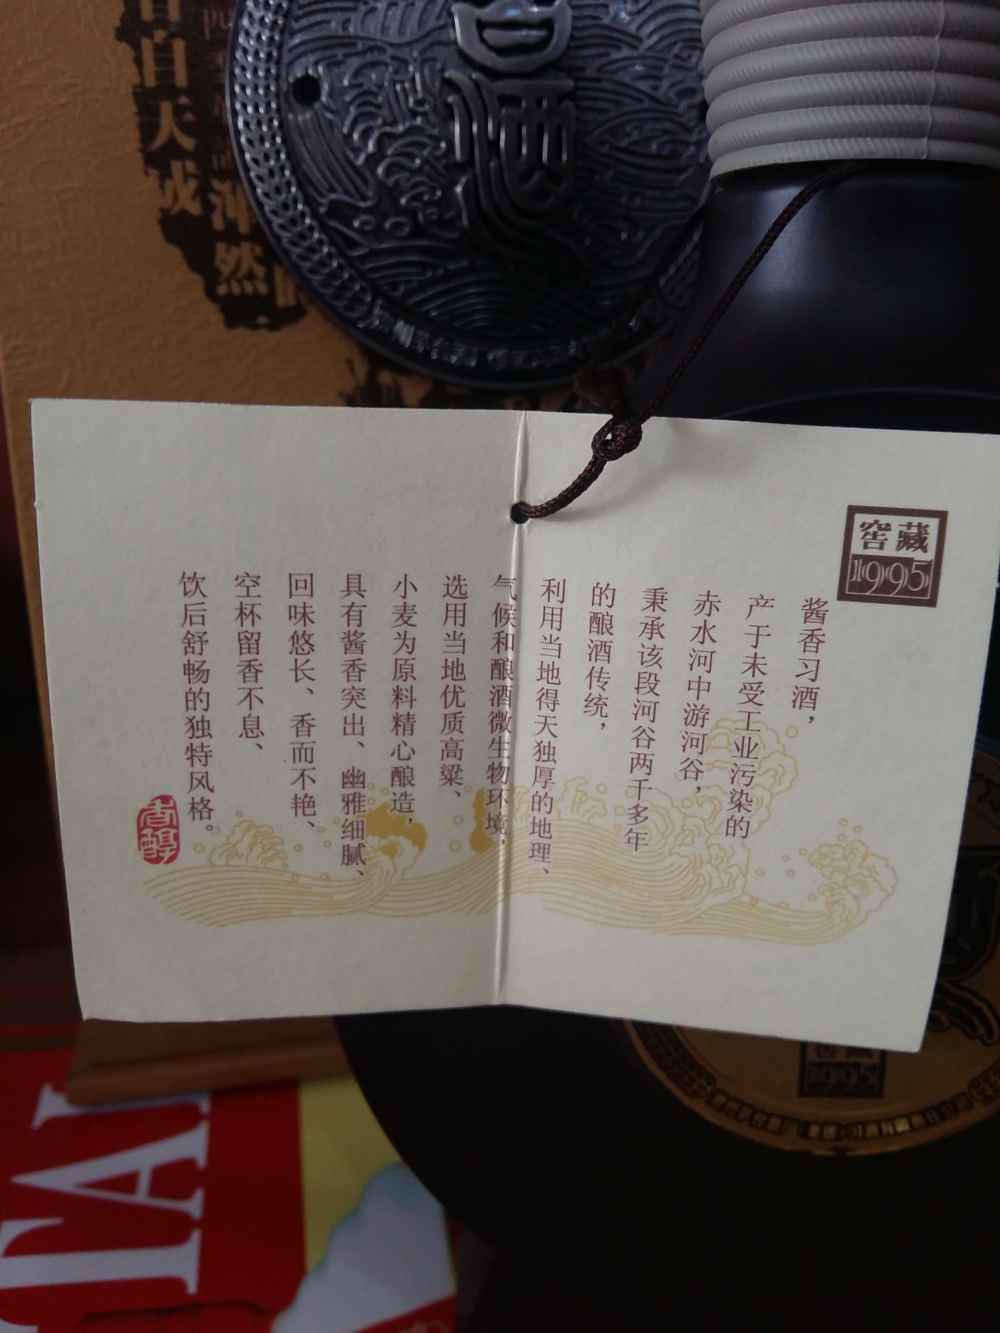 窖藏
1995
酱香习酒，
产于未受工业污染的
赤水河中游河谷，
秉承该段河谷两千多年
的酿酒传统，
利用当地得天独厚的地理、
气候和酿酒微生物环境，
选用当地优质高粱、
小麦为原料精心酿造，
具有酱香突出、幽雅细腻、
回味悠长、香而不艳、
空杯留香不息、
饮后舒畅的独特风格。
香醇
酒
自天成
然
窖藏
1995
TAI